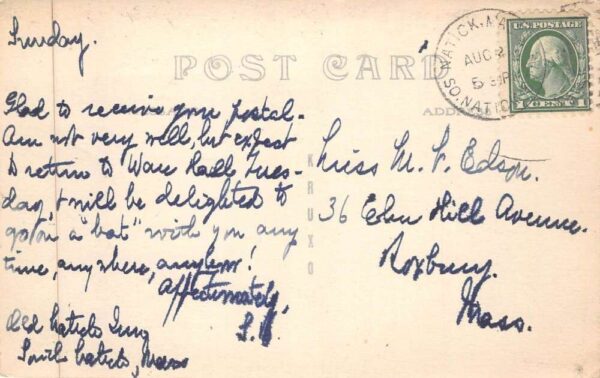 Sunday.
POST CARD
NATICK. MA
AUG 2
5
SO. NATIC
U.S. POSTAGE
1 CENT 1
Glad to receive your postal.
Am not very well, but expect
to return to Ware Hall Tues-
day, & will be delighted to
go on a "bat" with you any
time, anywhere, anyhow!
Affectionately,
Old Natick Inn
South Natick, Mass
ADD
KRUXO
Miss M. F. Edson.
36 Hill Avenue.
Roxbury.
Mass.